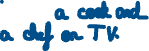 a cook and
a chef on T.V.